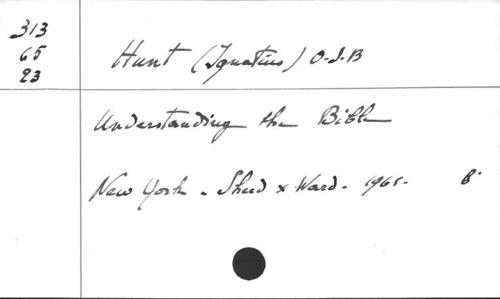 313
65
23
Hunt (Ignatius) O.S.B
Understanding the Bible
New York - Sheed & Ward - 1965.
B.